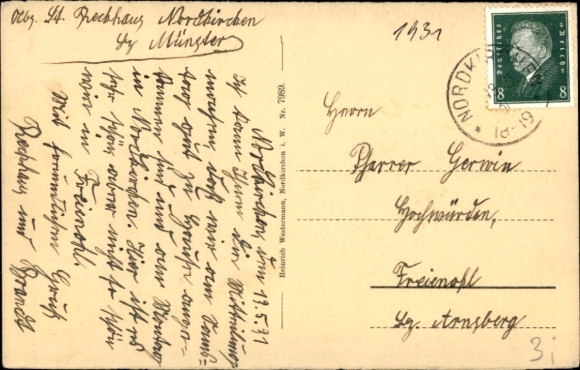 Abg. St. Rekhaus Nordkirchen
Bz Münster
1931
Deutsches Reich
8 8
NORDKIRCHEN
18-19
Nordkirchen, den 19.5.31
Ich kann Ihnen die Mitteilung
machen daß wir am Sams-
tag gut zu Hause ange-
kommen sind und am Montag
in Nordkirchen. Hier ist es
sehr schön aber nicht so schön
wie in Freienohl.
Mit freundlichem Gruß
Rekhaus und Brandt
Heinrich Westermann, Nordkirchen i. W. Nr. 7989.
Herrn
Pfarrer Gerwin
Hochwürden,
Freienohl
Bz. Arnsberg
3i